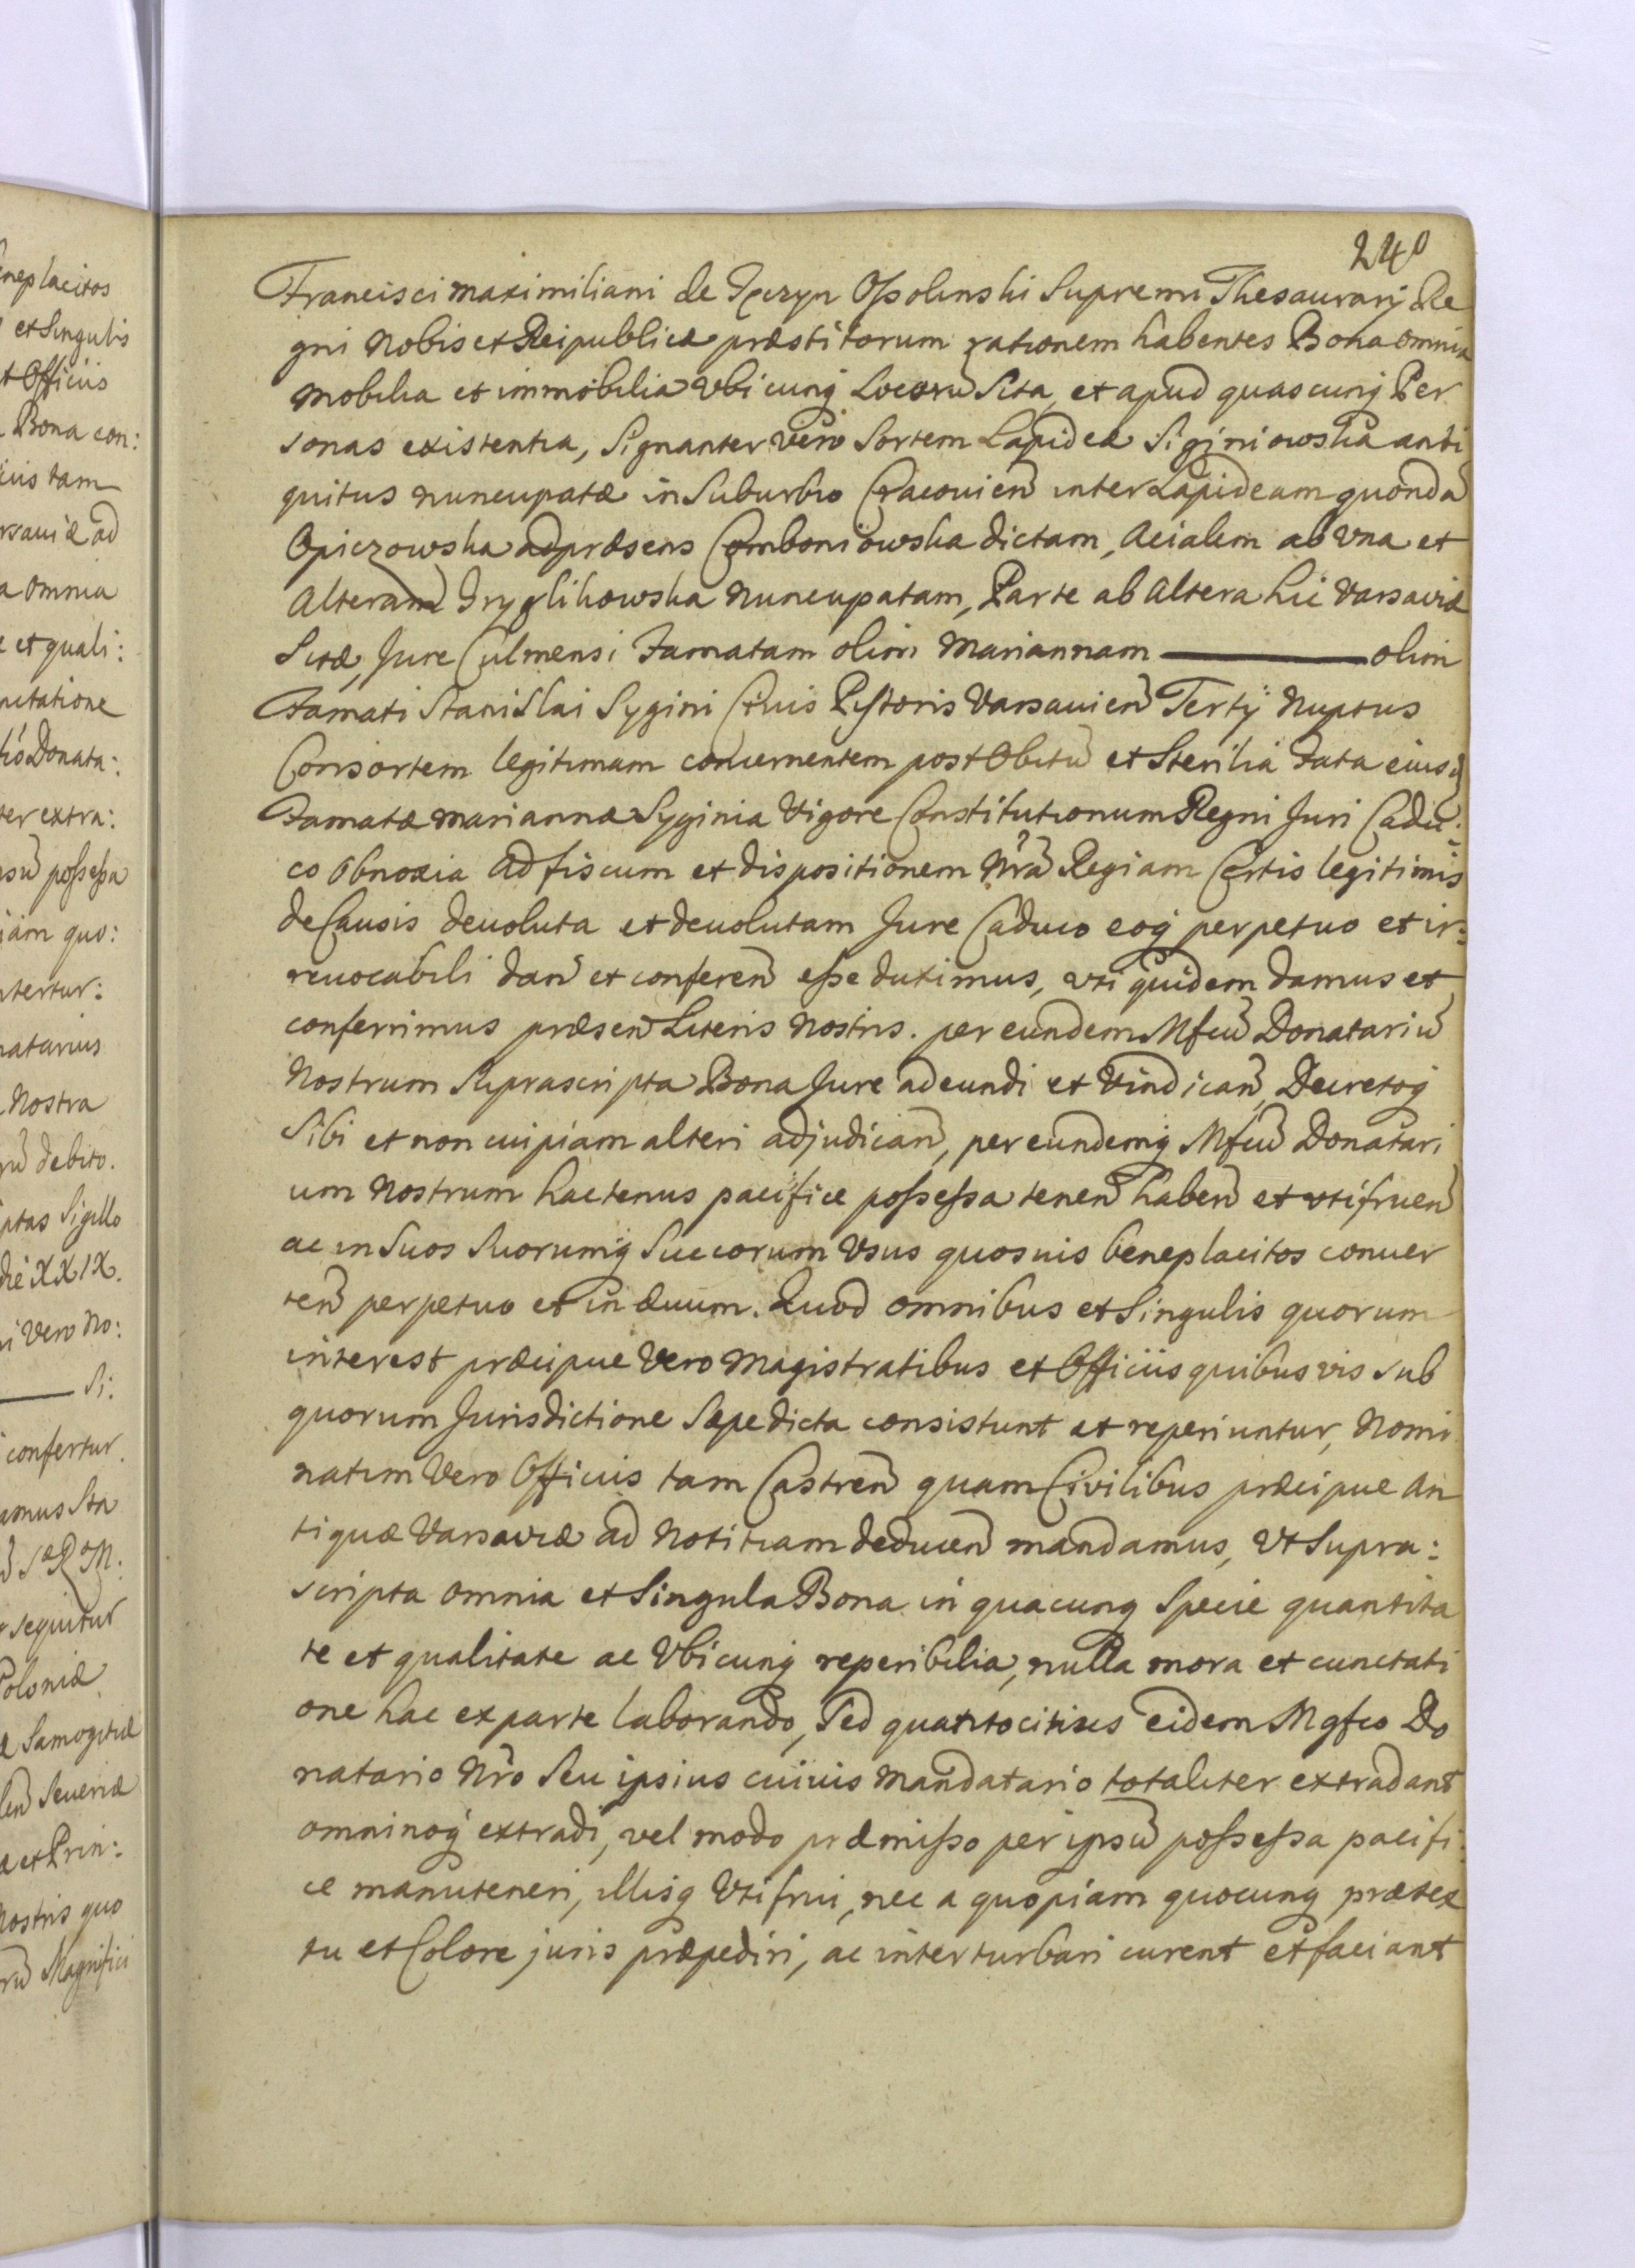 240
Francisci Maximiliani de Tęczyn Ossolinski Supremi Thesaurarij Re
gni Nobis et Reipublicæ præstitorum rationem habentes Bona omnia
Mobilia et immobilia Vbicunq Locorũ Sita, et apud quascunq Per
sonas existentia, Signanter vero Sortem Lapideæ Siginiowska anti
quitus nuncupatæ in Suburbio Cracovien inter Lapideam quondã
Opiczowska ad præsens Comboniowska dictam, Acialem ab Vna et
Alteram Tryglikowska Nuncupatam, Parte ab Altera hic Varsaviæ
Sitæ, Jure Culmensi Famatam olim Mariannam ——— olim
Famati Stanislai Sygini Civis Pistoris Varsavien Tertij Nuptus
Consortem legitimam concernentem post Obitũ et Sterilia Fata eiusd
Famatæ Mariannæ Syginia Vigore Constitutionum Regni Juri Cadu:
co Obnoxia ad fiscum et dispositionem Nrã Regiam Certis legitimis
de Causis devoluta et devolutam Jure Caduco eoq perpetuo et ir:
revocabili dan et conferen esse duximus, uti quidem damus et
conferrimus præsen Literis Nostris. per eundem Mfcũ Donatariũ
Nostrum Suprascripta Bona Jure adeundi et Vindican, Decretoq
Sibi et non cuipiam alteri adjudican, per eundemq Mfcũ Donatari
um Nostrum hactenus pacifice possessa tenen haben et utifruen
ac in Suos Suorumq Succorum Usus quosvis beneplacitos conver
ten perpetuo et in ævum. Quod omnibus et Singulis quorum
interest præcipue Vero Magistratibus et Officiis quibusvis sub
quorum Jurisdictione Sæpe dicta consistunt et reperiuntur, Nomi
natim Vero Officiis tam Castren quam Civilibus præcipue An
tiquæ Varsaviæ ad Notitiam deducen mandamus, Ut Supra:
scripta omnia et Singula Bona in quacunq Specie quantita
te et qualitate ac Ubicunq reperibilia, nulla mora et cunctati
one hac ex parte laborando, Sed quantocitius eidem Mgfco Do
natario Nro Seu ipsius cuivis Mandatario totaliter extradant
omninoq extradi, vel modo præmisso per ipsũ possessa pacifi:
ce manuteneri, illisq Utifrui, nec a quopiam quocunq prætex
tu et Colore juris præpediri, ac interturbari curent et faciant